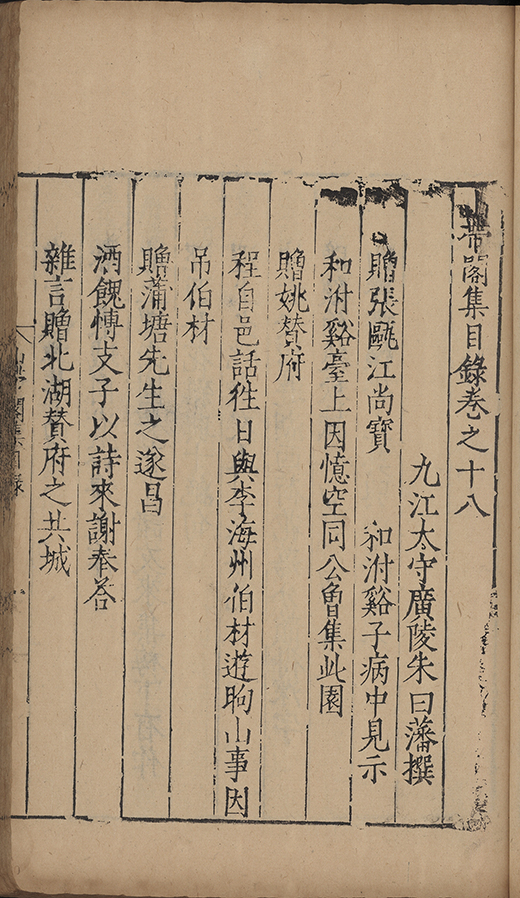 帶閣集目錄卷之十八
九江太守廣陵朱曰藩撰
贈張甌江尚寶 和泭谿子病中見示
和泭谿臺上因憶空同公曾集此園
贈姚賛府
程自邑話徃日與李海州伯材遊朐山事因
吊伯材
贈蒲塘先生之遂昌
酒餽愽支子以詩來謝奉答
雜言贈北湖賛府之共城